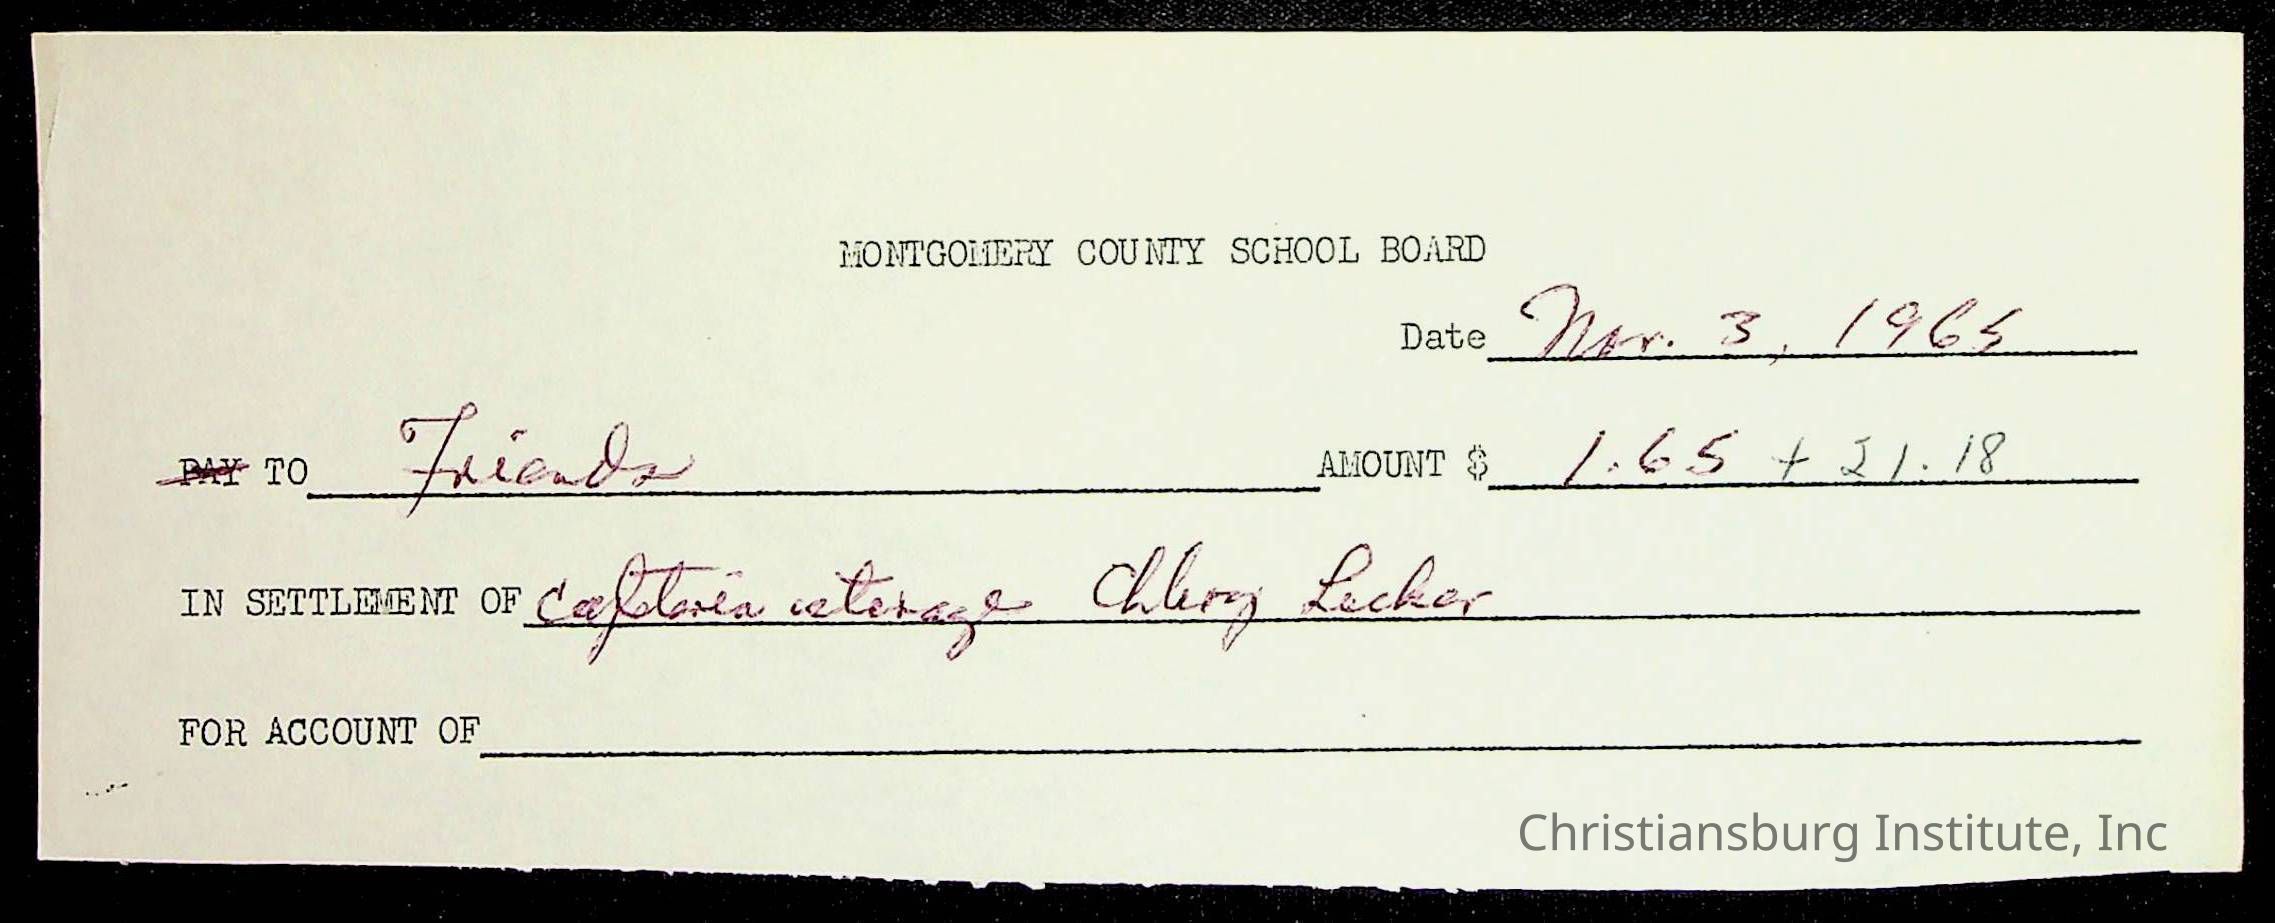 MONTGOMERY COUNTY SCHOOL BOARD
Date Nov. 3, 1965
PAY TO Friends AMOUNT $ 1.65 + 21.18
IN SETTLEMENT OF Cafeteria storage
FOR ACCOUNT OF
Christiansburg Institute, Inc